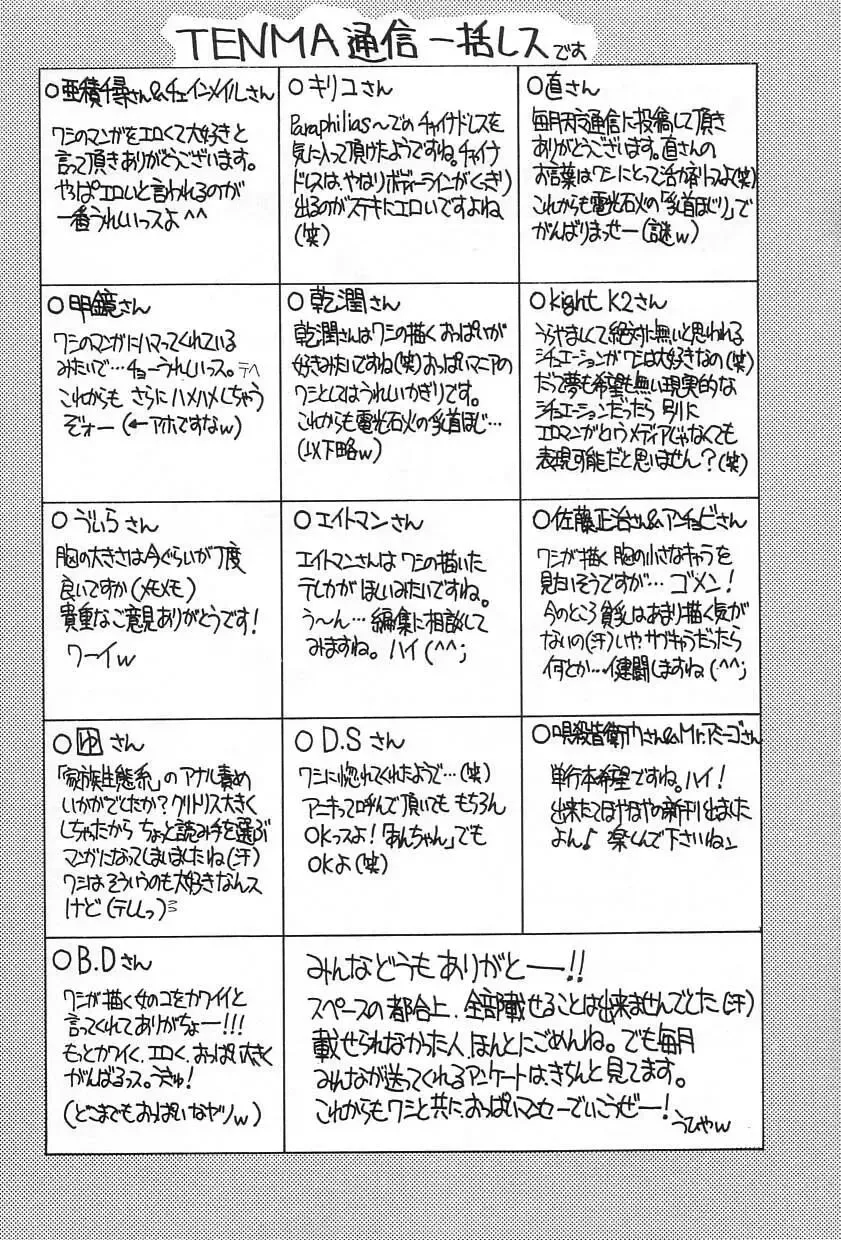 TENMA通信一括レスです
○亜積千尋さん&チェインメイルさん
ワシのマンガをエロくて大好きと
言って頂きありがとうございます。
やっぱエロいと言われるのが
一番うれしいっスよ^^
○キリコさん
Paraphilias〜でのチャイナドレスを
気に入って頂けたようですね。チャイナ
ドレスは、やはりボディーラインがくっきり
出るのがステキにエロいですよね
(笑)
○直さん
毎月天定通信に投稿して頂き
ありがとうございます。直さんの
お言葉はワシにとって活力剤っスよ(笑)
これからも電光石火の「乳首ほじり」で
がんばりまっせー(謎w)
○明鏡さん
ワシのマンガにハマってくれている
みたいで…チョーうれしいっス。テヘ
これからも さらにハメハメしちゃう
ぞォー(←アホですなw)
○乾潤さん
乾潤さんはワシの描くおっぱいが
好きみたいですね(笑)おっぱいマニアの
ワシとしてはうれしいかぎりです。
これからも電光石火の乳首ほじ…
(以下略w)
○kight K2さん
うらやましくて絶対に無いと思われる
シチュエーションがワシは大好きなの(笑)
だって夢も希望も無い現実的な
シチュエーションだったら 別に
エロマンガというメディアじゃなくても
表現可能だと思いません?(笑)
○う゛ぃらさん
胸の大きさは今ぐらいが丁度
良いですか(メモメモ)
貴重なご意見ありがとうです!
ワーイw
○エイトマンさん
エイトマンさんは ワシの描いた
テレカがほしいみたいですね。
う〜ん…編集に相談して
みますね。ハイ(^^;
○佐藤正治さん&アンチョビさん
ワシが描く胸の小さなキャラを
見たいそうですが… ゴメン!
今のところ貧乳はあまり描く気が
ないの(汗)いや、サブキャラだったら
何とか…イ建闘しますね(^^;
○ゆさん
「家族生態系」のアナル責め
いかがでしたか?クリトリス大きく
しちゃたから ちょっと読み手を選ぶ
マンガになってしまいましたね(汗)
ワシはそういうのも大好きなんス
けど(テレLっ)ミ
○D.Sさん
ワシに惚れてくれたようで…(笑)
アニキって呼んで頂いても もちろん
OKっスよ!「あんちゃん」でも
OKよ(笑)
さん&Mr.アミーゴさん
単行本希望ですね。ハイ!
出来たてほやほやの新刊出ました
よん♪ 楽しんで下さいねン
○B.Dさん
ワシが描く女のコをカワイイと
言ってくれてありがちょー!!!
もっとカワイく、エロく、おっぱい大きく
がんばるっス。うきゅ!
(どこまでもおっぱいなヤツw)
みんなどうもありがとー!!
スペースの都合上、全部載せることは出来ませんでした(汗)
載せられなかった人、ほんとにごめんね。でも毎月
みんなが送ってくれるアンケートは、きちんと見てます。
これからもワシと共におっぱいマンセーでいこうぜー!
うひゃw